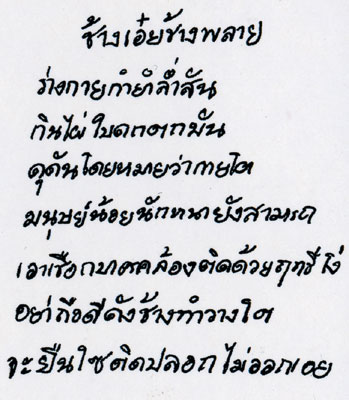 ช้างเอ๋ยช้างพลาย
ร่างกายกำยำล่ำสัน
กินไผ่ใบดกตกมัน
ดุดันโดยหมายว่ากายโต
มนุษย์น้อยนักหนายังสามารถ
เอาเชือกบาศคล้องติดด้วยฤทธิ์โง่
อย่าถือดีดังช้างทำวางโต
จะยืนโซติดปลอกไม่ออกเอย